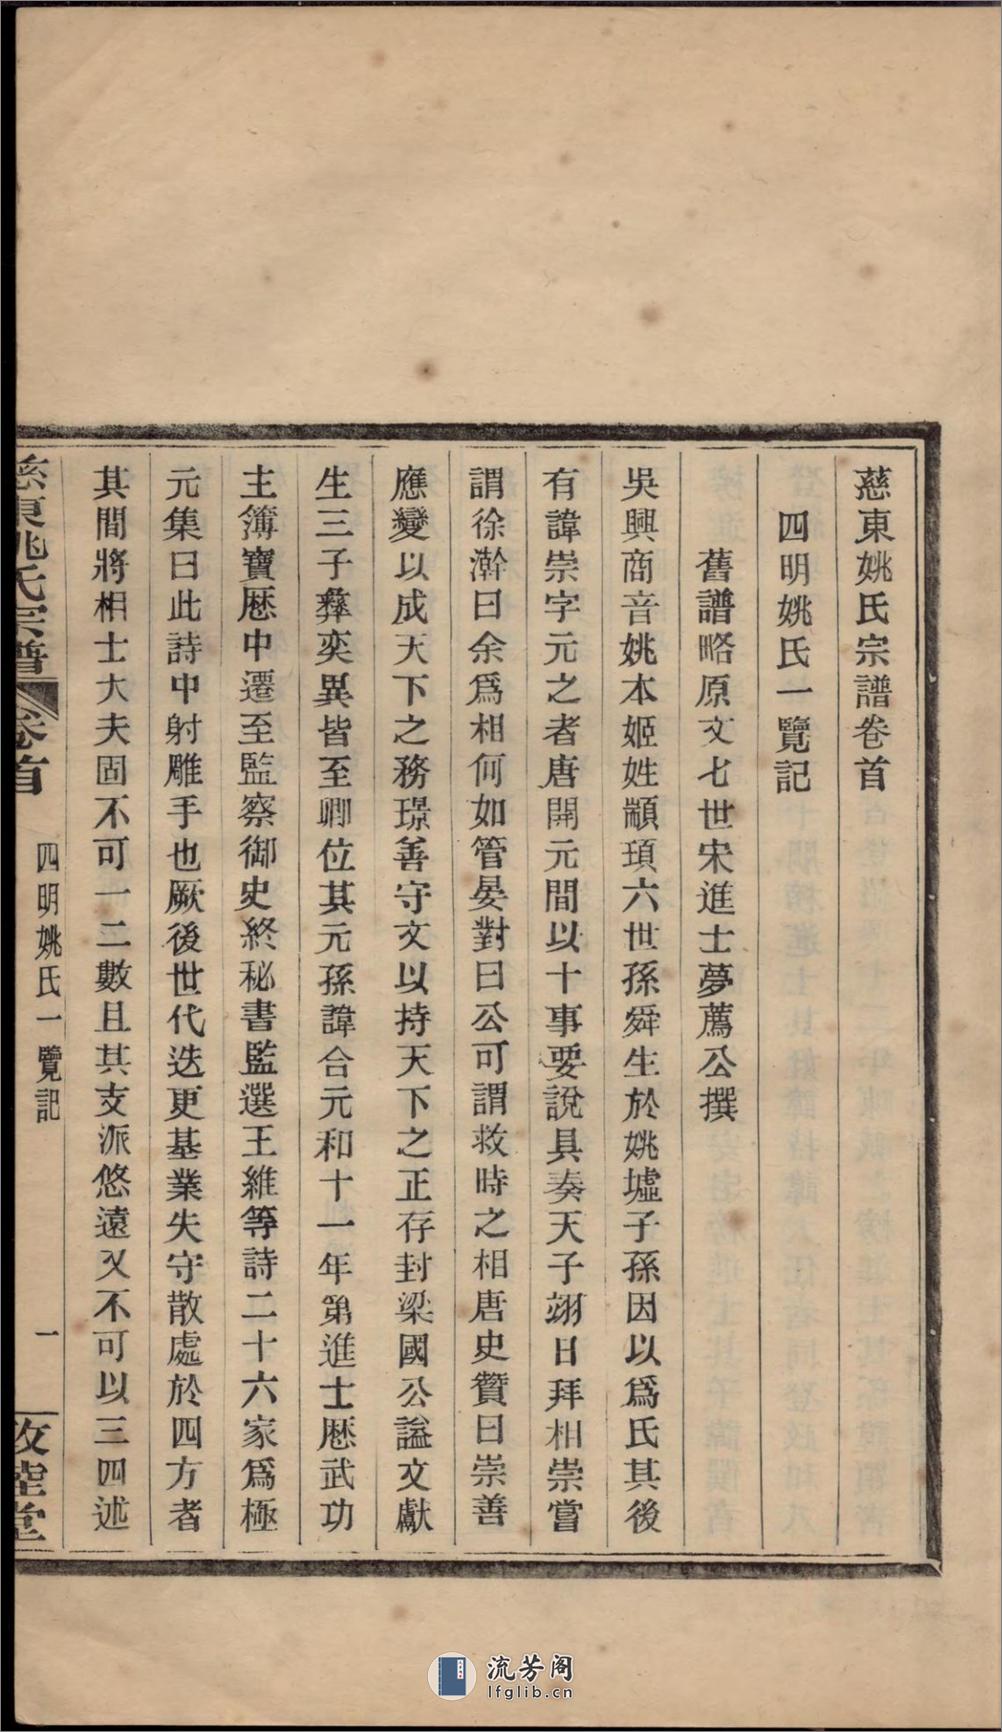 慈東姚氏宗譜卷首
四明姚氏一覽記
舊譜略原文七世宋進士夢薦公撰
吳興商音姚本姬姓顓頊六世孫舜生於姚墟子孫因以爲氏其後
有諱崇字元之者唐開元間以十事要說具奏天子翊日拜相崇嘗
謂徐澣曰余爲相何如管晏對曰公可謂救時之相唐史贊曰崇善
應變以成天下之務璟善守文以持天下之正存封梁國公謚文獻
生三子彝奕異皆至卿位其元孫諱合元和十一年第進士歷武功
主簿寶歷中遷至監察御史終秘書監選王維等詩二十六家爲極
元集曰此詩中射雕手也厥後世代迭更基業失守散處於四方者
其間將相士大夫固不可一二數且其支派悠遠又不可以三四述
慈東姚氏宗譜 卷首 四明姚氏一覽記 一
流芳阁
lfglib.cn